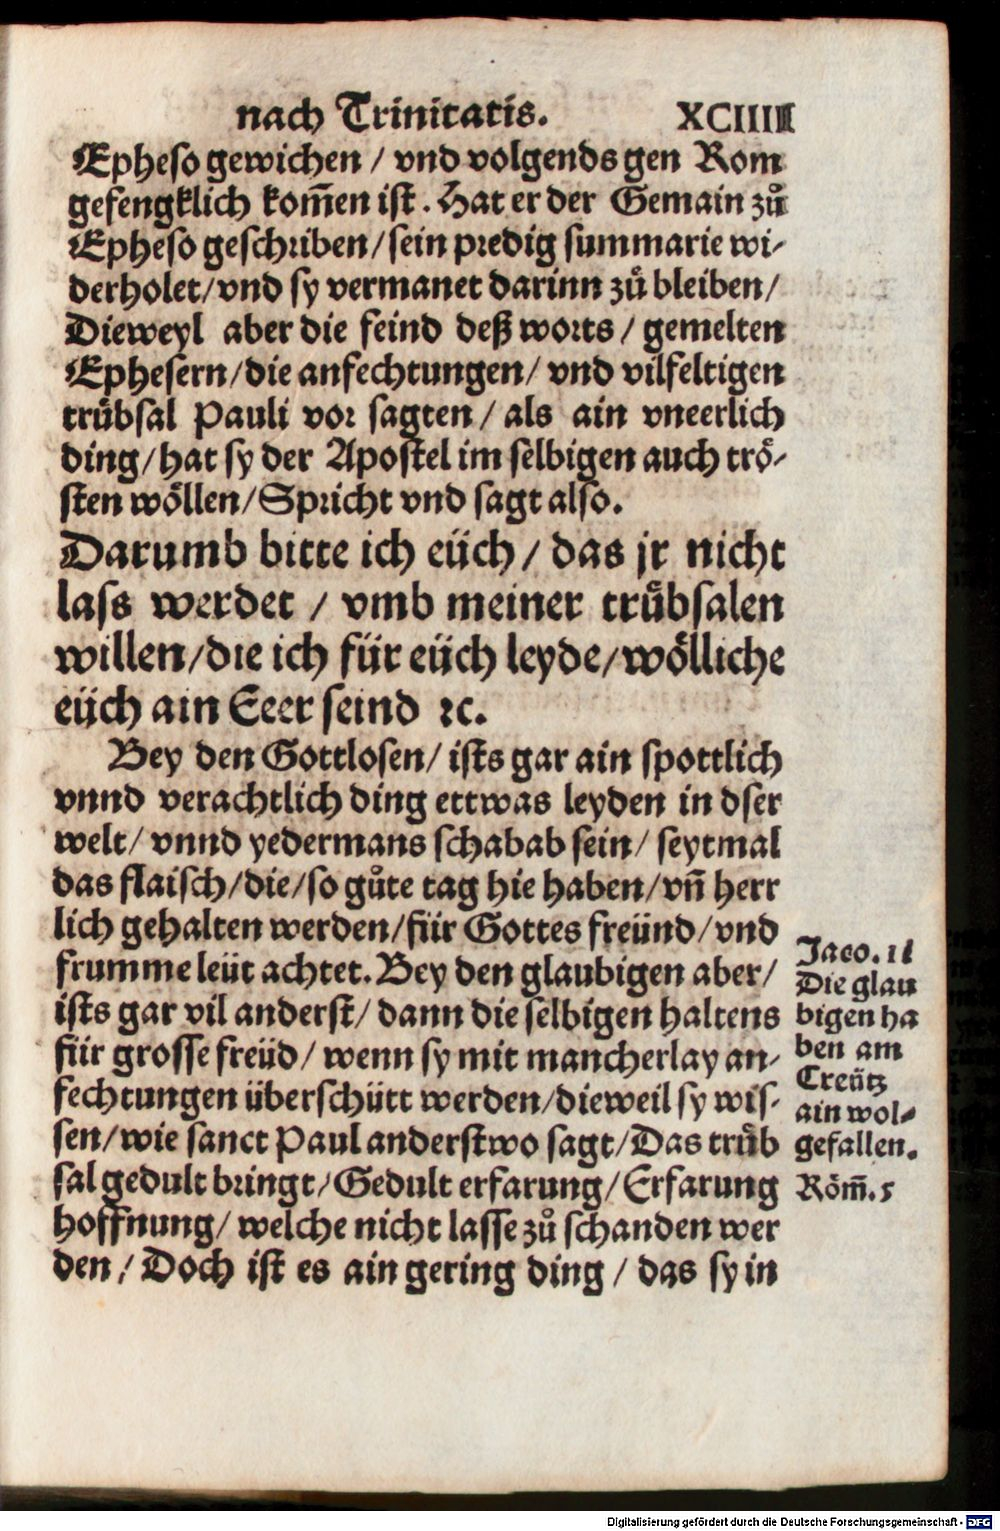 nach Trinitatis. XCIIII
Epheso gewichen / vnd volgends gen Rom
gefengklich kom̃en ist. Hat er der Gemain zů
Epheso geschriben/sein predig summarie wi-
derholet/vnd sy vermanet darinn zů bleiben/
Dieweyl aber die feind deß worts / gemelten
Ephesern/die anfechtungen/ vnd vilfeltigen
trůbsal Pauli vor sagten / als ain vneerlich
ding/hat sy der Apostel im selbigen auch trö-
sten wöllen/Spricht vnd sagt also.
Darumb bitte ich eüch / das jr nicht
lass werdet / vmb meiner trůbsalen
willen/die ich für eüch leyde/wölliche
eüch ain Eeer seind ꝛc.
Bey den Gottlosen/ ists gar ain spottlich
vnnd verachtlich ding ettwas leyden in dser
welt/ vnnd yedermans schabab sein/ seytmal
das flaisch/die/so gůte tag hie haben/vn̄ herr
lich gehalten werden/für Gottes freünd/vnd
frumme leüt achtet. Bey den glaubigen aber/
ists gar vil anderst/ dann die selbigen haltens
für grosse freüd/ wenn sy mit mancherlay an-
fechtungen überschütt werden/dieweil sy wis-
sen/wie sanct Paul anderstwo sagt/Das trůb
sal gedult bringt/Gedult erfarung/Erfarung
hoffnung/ welche nicht lasse zů schanden wer
den/ Doch ist es ain gering ding / das sy in
Jaco. 1
Die glau
bigen ha
ben am
Creütz
ain wol-
gefallen.
Röm̃. 5
Digitalisierung gefördert durch die Deutsche Forschungsgemeinschaft - DFG